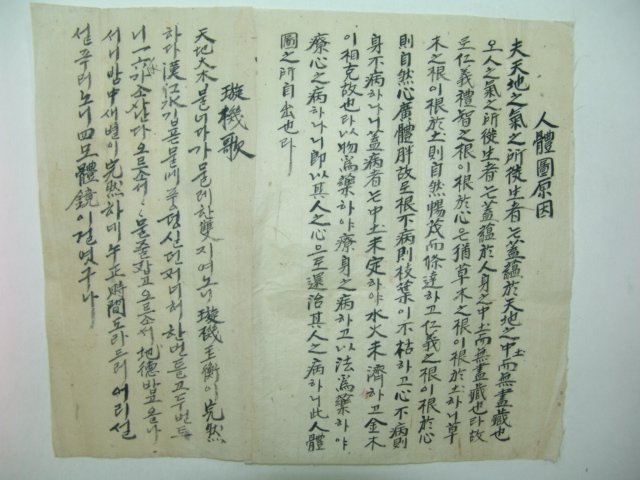 人體圖原因
夫天地之氣之所從生者는盖蘊於天地之中土而無盡藏也
오人之氣之所從生者는盖蘊於人身之中土而無盡藏也라故
로仁義禮智之根이根於心은猶草木之根이根於土하니草
木之根이根於土則自然暢茂而條達하고仁義之根이根於心
則自然心廣體胖故로根不病則枝葉이不枯하고心不病則
身不病하나니盖病者는中土未定하야水火未濟하고金木
이相克故也라以物爲藥하야療身之病하고以法爲藥하야
療心之病하나니即以其人之心으로還治其人之病하니此人體
圖之所自出也라
璇機歌
天地大水 물 한雙 지여노니 璇璣玉衡이 完然
하다 漢江水 깁픈물에 한번들고두번들
오르소서 물줄잡고오르소서 地德밥고올나
서니 밤中새별이 完然하데 午正時間 도라드러 어리선
설푸러노니 四모體鏡이 걸엿구나